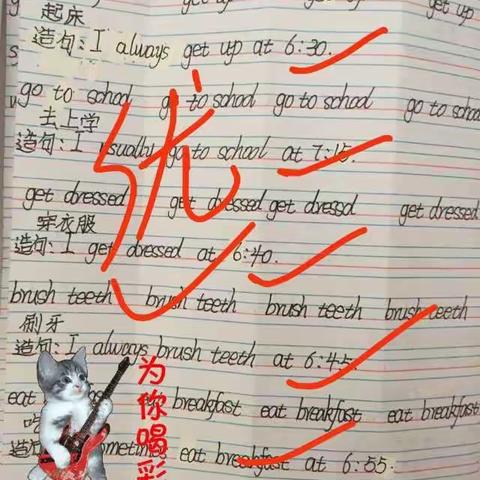 get up get up
起床
造句: I always get up at 6:30.
go to school go to school go to school go to school
去上学
造句: I usually go to school at 7:15.
get dressed get dressed get dressd get dressed
穿衣服
造句: I get dressed at 6:40.
brush teeth brush teeth brush teeth brush teeth
刷牙
造句: I always brush teeth at 6:45.
eat breakfast eat breakfast eat breakfast
吃
造句: sometimes eat breakfast at 6:55.
优
为你喝彩